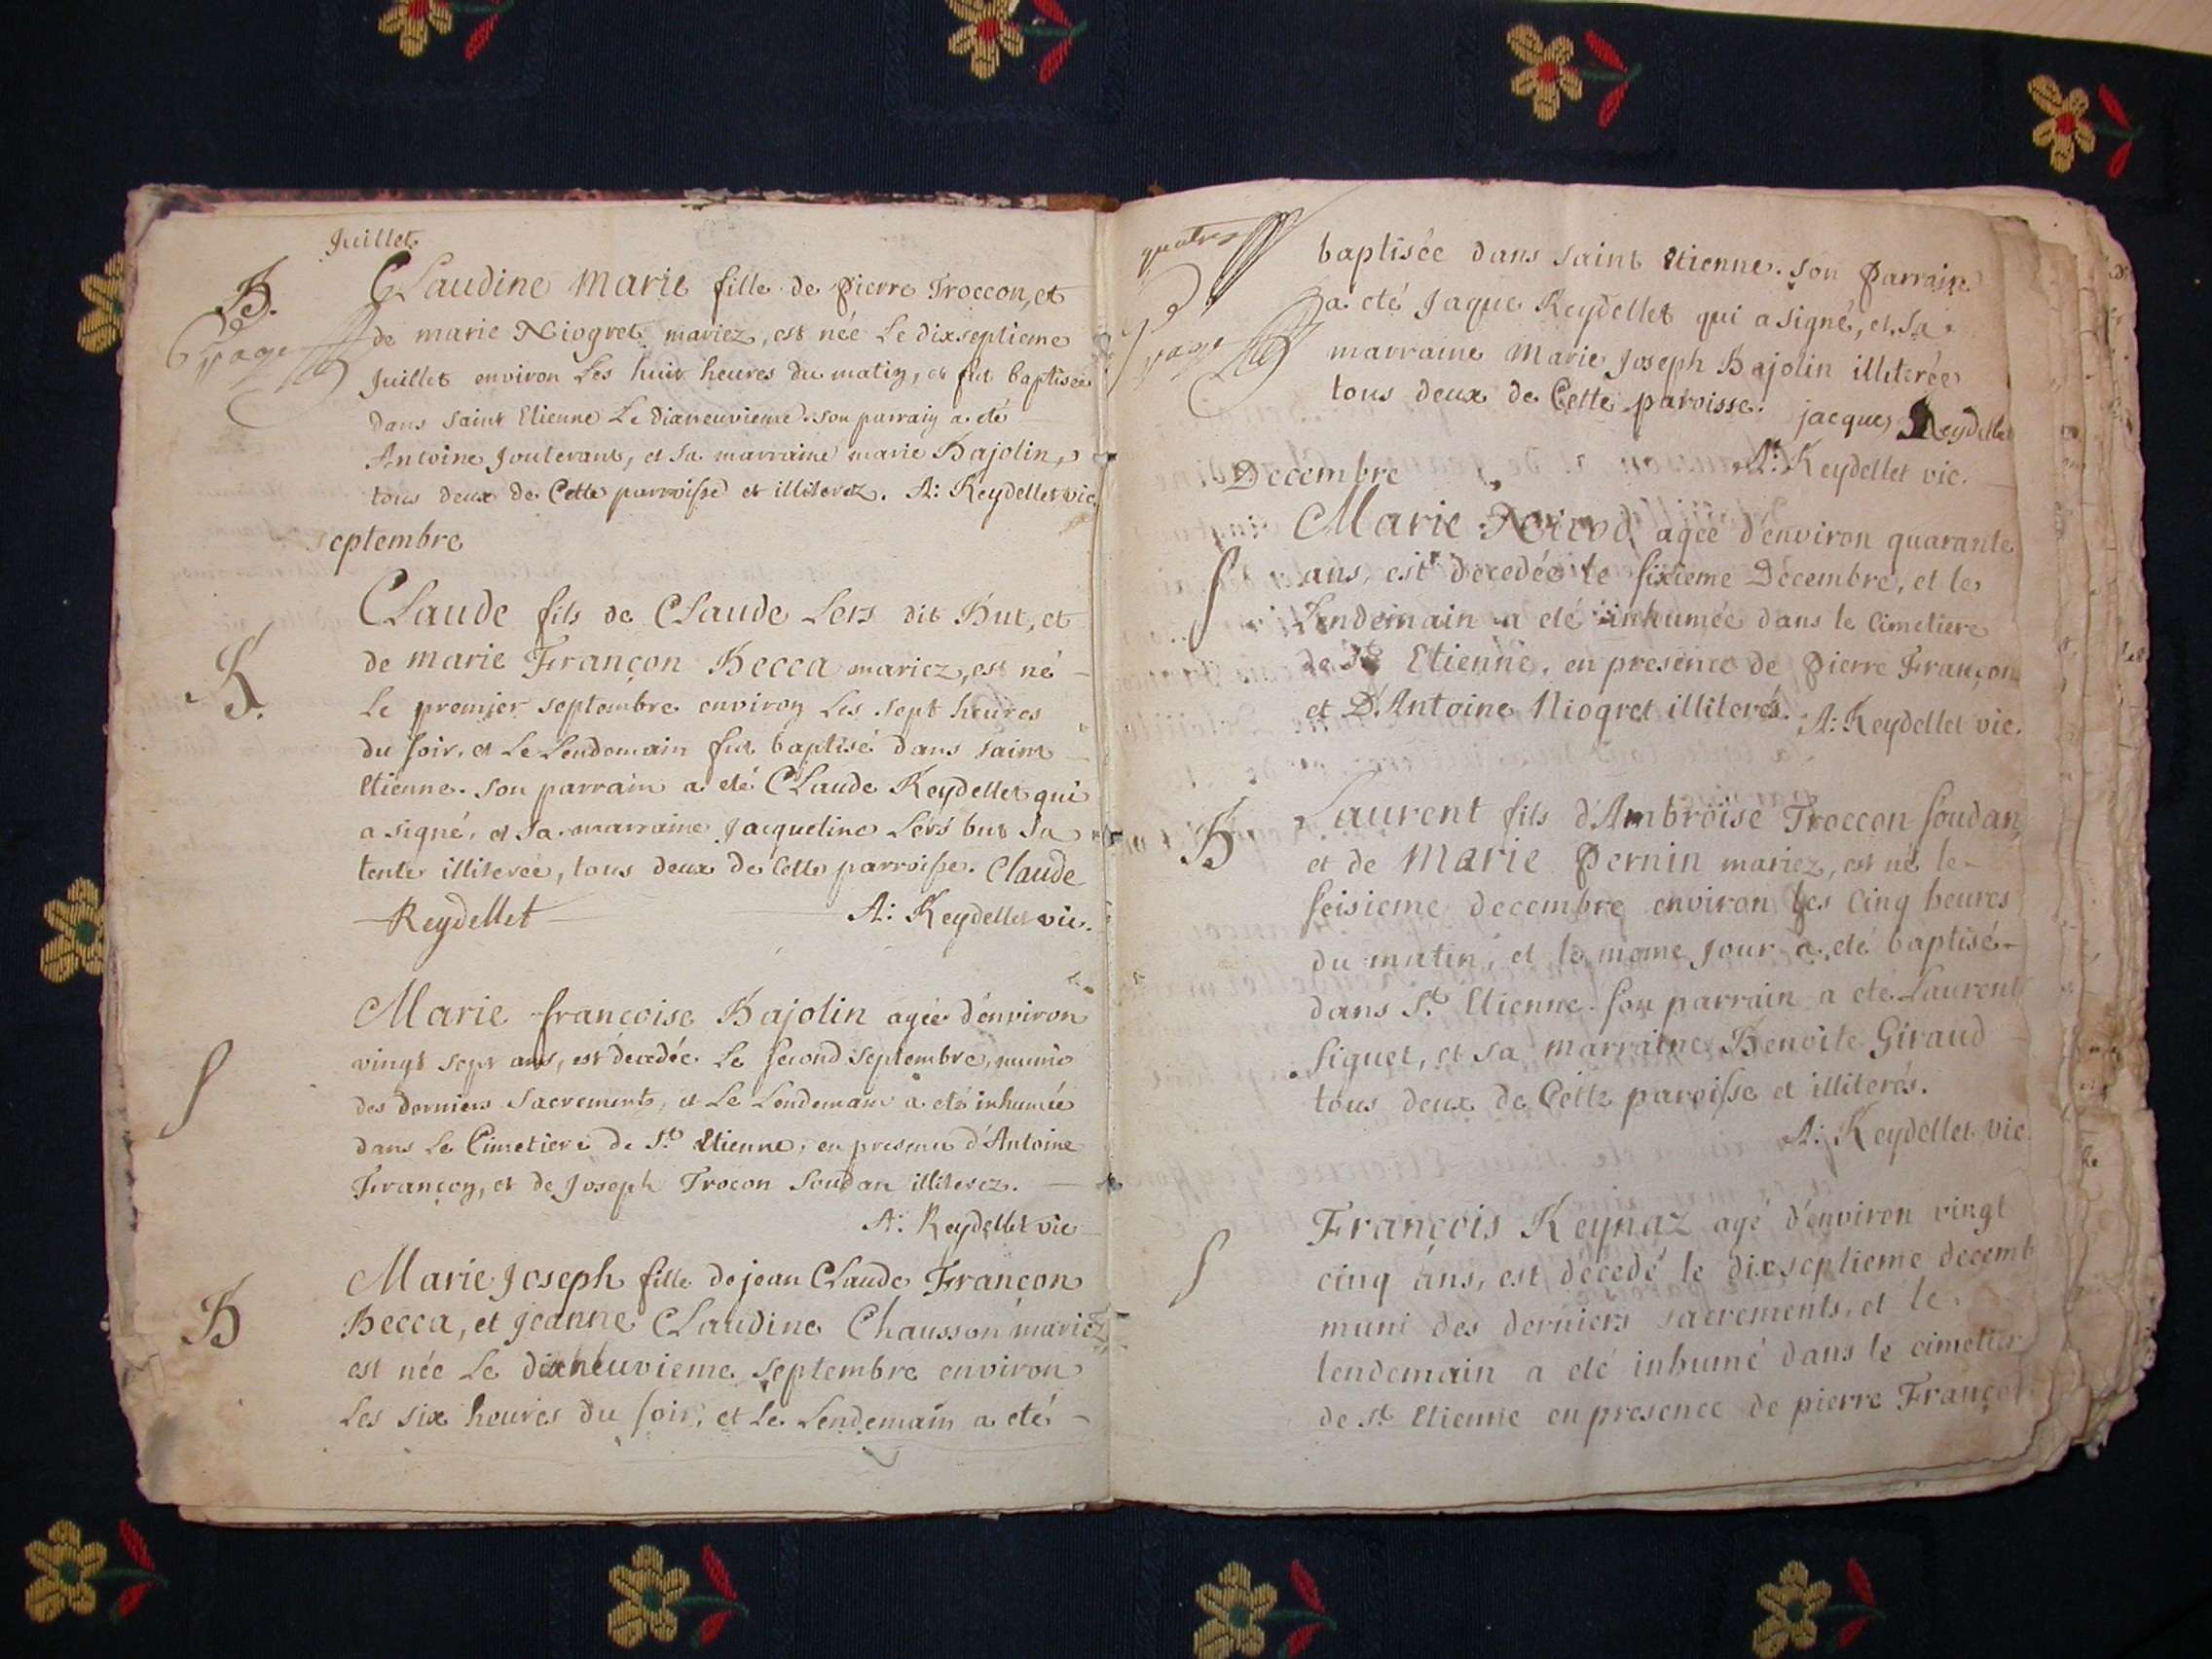 Juillet
B.
page
CLaudine Marie fille de pierre Troccon, et
de marie Niogret mariez, est née Le dixseptieme
Juillet environ Les huit heures du matin, et fut baptisée
dans saint Etienne Le dixneuvieme. son parrain a eté
Antoine Jouterant, et sa marraine marie Bajolin,
tous deux de Cette parroisse et illiterez. A: Reydellet vic.
septembre
B.
CLaude fils de CLaude Lers dit But, et
de marie Françon Becca mariez, est né
Le premier septembre environ Les sept heures
du soir, et Le Lendemain fut baptisé dans saint
Etienne. son parrain a eté CLaude Reydellet qui
a signé, et sa marraine Jacqueline Lers but sa
tente illiterée, tous deux de Cette parroisse. Claude
Reydellet A: Reydellet vic.
S
Marie françoise Bajolin agée d'environ
vingt sept ans, est decedée Le second septembre, munie
des derniers sacrements, et Le Lendemain a eté inhumée
dans Le Cimetiere de St. Etienne, en presence d'Antoine
Françon, et de Joseph Trocon Soudan illiterez.
A: Reydellet vic
B
Marie Joseph fille de jean CLaude Françon
Becca, et jeanne CLaudine Chausson mariez
est née Le dixneuvieme septembre environ
Les six heures du soir, et Le Lendemain a eté
quatre
page
baptisée dans saint Etienne. son parrain
a eté Jaque Reydellet qui a signé, et sa
marraine Marie Joseph Bajolin illiterée
tous deux de Cette paroisse. jacques Reydellet
A: Reydellet vic.
Decembre
S
Marie Nicod agée d'environ quarante
ans, est decedée le sixieme Decembre, et le
Lendemain a eté inhumée dans le Cimetiere
de St Etienne, en presence de pierre Françon
et D'Antoine Niogret illiterés. A: Reydellet vic.
B
Laurent fils d'Ambroise Troccon soudan,
et de Marie Pernin mariez, est né le
seisieme decembre environ les Cinq heures
du matin, et le meme Jour a eté baptisé
dans St. Etienne. son parrain a eté Laurent
Siguet, et sa marraine Benoite Giraud
tous deux de Cette paroisse et illiterés.
A: Reydellet vic.
S
François Reynaz agé d'environ vingt
cinq ans, est decedé le dixseptieme decemb
muni des derniers sacrements, et le
lendemain a eté inhumé dans le cimetier
de St. Etienne en presence de pierre Françon